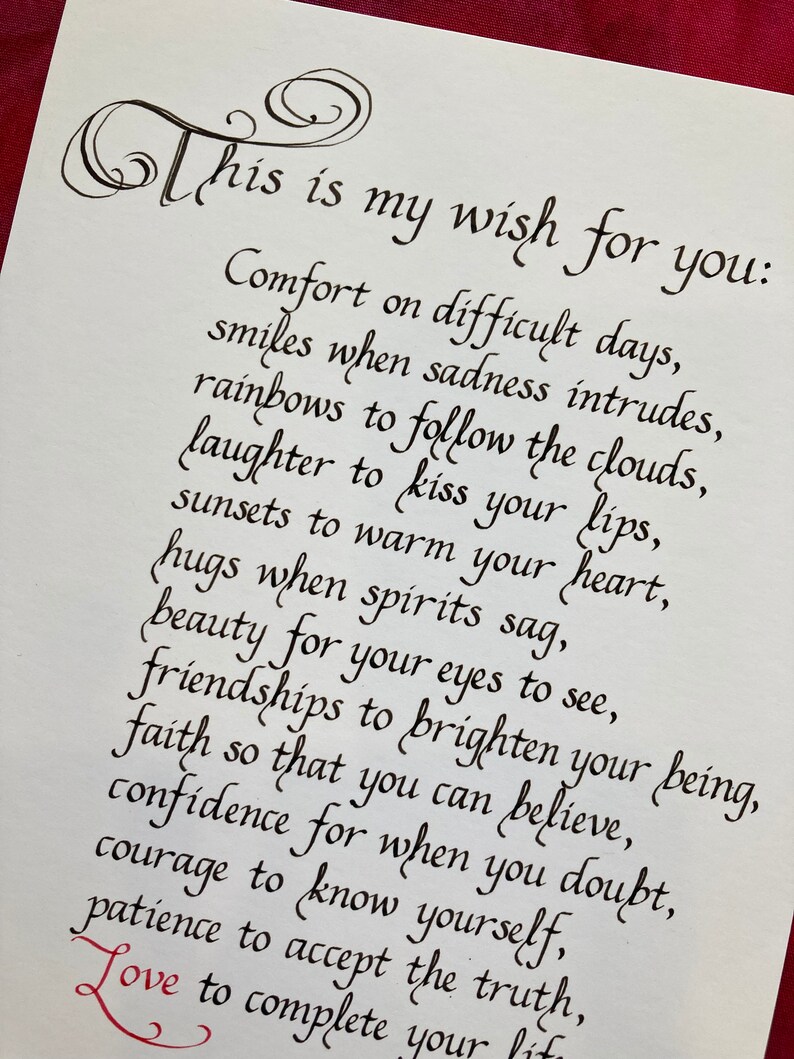 This is my wish for you:
Comfort on difficult days,
smiles when sadness intrudes,
rainbows to follow the clouds,
laughter to kiss your lips,
sunsets to warm your heart,
hugs when spirits sag,
beauty for your eyes to see,
friendships to brighten your being,
faith so that you can believe,
confidence for when you doubt,
courage to know yourself,
patience to accept the truth,
Love to complete your